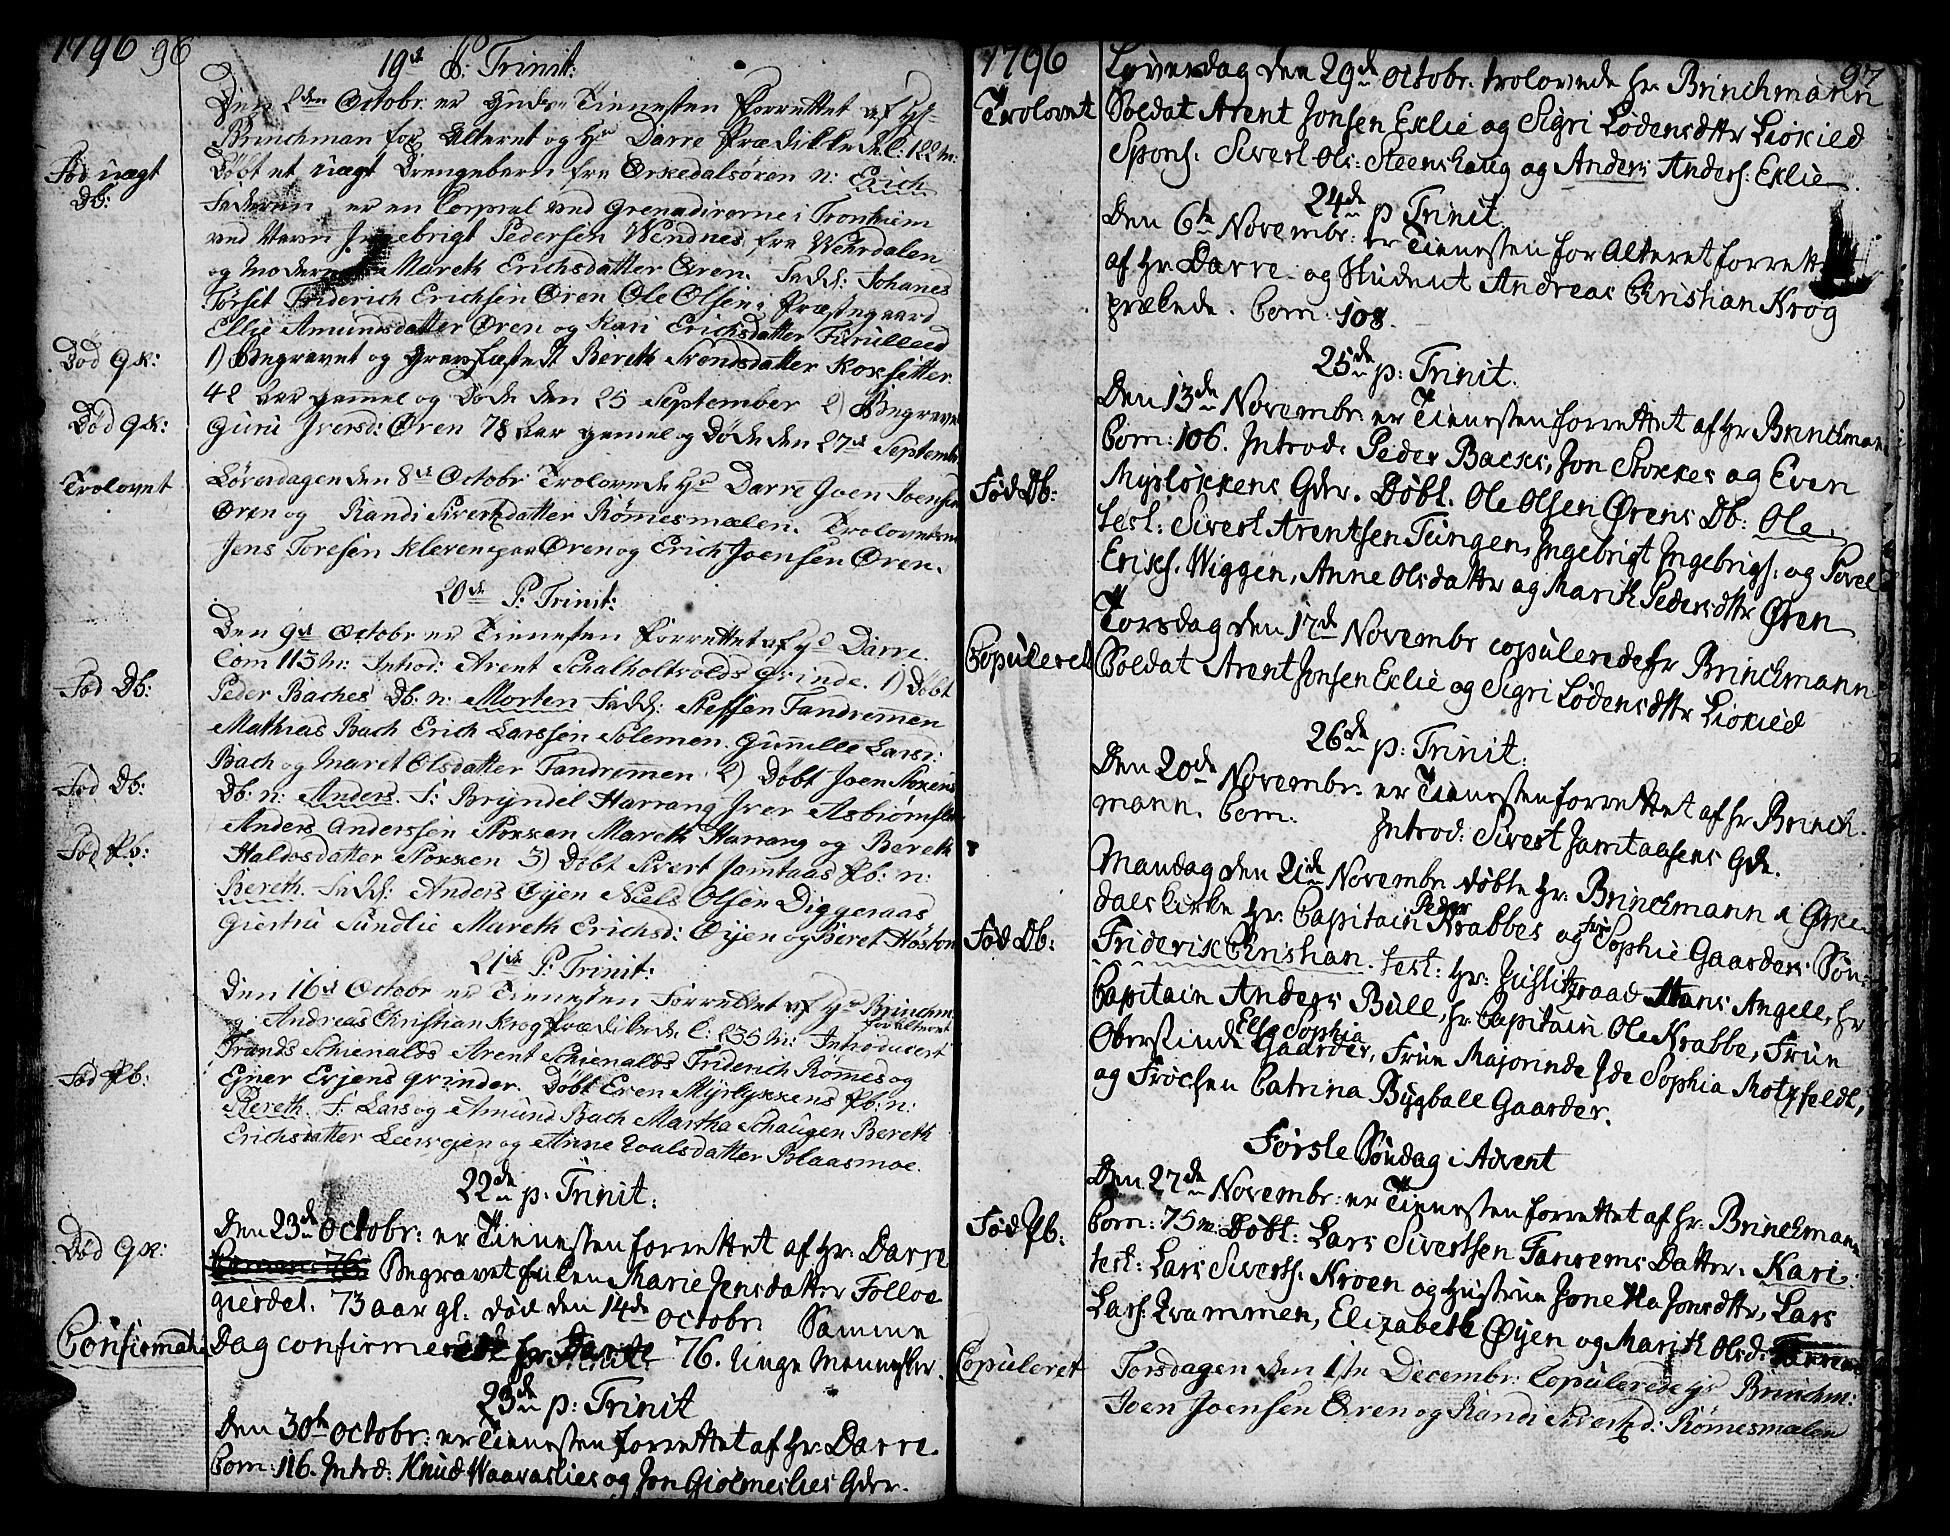 1796 96
19de P: Trinit:
Den 2den Octobr. er Guds Tienesten Forrettet af Hr
Brinchman for Alteret og Hr Darre Prædikkede C: 122 M:
Fød uægt
Db:
Døbt et uægt Drengebarn fra Orkedalsøren n: Erich
Faderen er en Corpral ved Grenadirerne i Tronhiem
ved Navn Ingebrigt Pedersen Wendnes fra Wehrdalen
og Moderen Mareth Erichsdatter Øren. Fadd: Johanes
Tørset Friderich Erichsen Øren Ole Olsen Præstegaard
Ellie Amundsdatter Øren og Kari Erichsdatter Furulleed
Død Qk:
1) Begravet og Grafæstet Bereth Trondsdatter Koxsetter
42 Aar gamel og Døde den 25 September 2) Begravet
Død Qk:
Guru Iversd: Øren 78 Aar gamel og Døde den 27de Septembr
Trolovet
Løverdagen den 8de Octobr Trolovede Hr Darre Joen Joensen
Øren og Randi Sivertsdatter Rømesmælen. Trolovetsmænd
Jens Toresen Klevenepaa Øren og Erich Joensen Øren.
20de P: Trinit:
Den 9de Octobr er Tienesten Forrettet af Hr Darre.
Com 113 M: Introd: Arent Schalholtvolds Qvinde. 1) Døbt
Fød Db:
Peder Baches Db: n: Morten Fadd: Steffen Fandremen
Mathias Bach Erich Larssen Solemen. Gunille Lars:
Bach og Maret Olsdatter Fandremen 2) Døbt Joen Stoxens
Fød Db:
Db: n: Anders. F: Bryndel Harrang Iver Asbiørnslie
Anders Anderssen Stoxen Mareth Harrang og Bereth
Fød Pb:
Haldosdatter Stoxen 3) Døbt Sivert Jamtaas Pb: n:
Bereth. Fadd: Anders Øyen Niels Olsen Diggeraas
Giertru Sundlie Mareth Erichsd: Øyen og Beret Høston
21de P: Trinit:
Den 16de Octobr er Tienesten Forrettet af Hr Brinchm.
for Alteret
og Andreas Christian Krog Prædikede C: 235 M: Introducert
Tronds Schienalds Arent Schienalds Friderich Rømes og
Fød Pb:
Ejner Erjens Qvinder. Døbt Even Myrløxens Pb: n:
Bereth. F: Lars og Amund Bach Martha Schaugen Bereth
Erichsdatter Leervejen og Anne Toalsdatter Blaasmoe.
22de p: Trinit:
Den 23de Octobr: er Tienesten forrettet af Hr: Darre
Død Qk:
Begravet Marie Jensdatter Folloe
gierdet. 73 aar gl. død den 14de Octobr. Samme
Confirmati
Dag confirmerede Hr: Darre 76. Unge Mennesker.
23de p: Trinit
Den 30te Octobr: er Tienesten forrettet af Hr: Darre.
Com: 116. Introd: Knud Waavaslies og Jon Giølmeslies Qder.
1796
97
Trolovet
Løverdag den 29de Octobr. trolovede Hr. Brinchmann
Soldat Arent Jonsen Exlie og Sigri Lødensdttr Lioxied
Spons. Sivert Ols: Steenshaug og Anders Anders: Exlie.
24de p Trinit
Den 6te Novembr: er Tienesten for Alteret forrettet
af Hr: Darre og Student Andreas Christian Krog
prækede. Com. 108.
25de p: Trinit.
Den 13de Novembr: er Tienesten forrettet af Hr Brinchman
Com: 106. Introd: Peder Backs, Jon Stoxxes og Even
Fød Db:
Myrløxkens Qder. Døbt. Ole Olsen Ørens Db: Ole.
test: Sivert Arentsen Tungen, Ingebrigt Ingebrigs: og Povel
Eriks. Wiggen, Anne Olsdatter og Marit Pedersdttr Øren
Copuleret
Torsdag den 17de Novembr copulerede Hr Brinchmann
Soldat Arent Jonsen Exlie og Sigri Lødensdttr Lioxied
26de p: Trinit.
Den 20de Novembr: er Tienesten forrettet af Hr Brinch-
mann. Com. Introd: Sivert Jamtaasens Qde.
Mandag den 21de Novembr døbte Hr: Brinchmann i Orke
dals Kirke Hr: Capitain Peder Krabbes og Frue Sophie Gaarders Søn
Fød Db:
Friderik Christian. test: Hr: Justitzraad Hans Angell, Hr
Capitain Anders Bull, Hr: Capitain Ole Krabbe, Frue
Oberstinde Elsa Sophia Gaarder, Frue Majorinde Ide Sophia Motzfeldt,
og Frøchen Catrina Bygball Gaarder.
Første Søndag i Advent
Den 27de Novembr: er Tienesten forrettet af Hr: Brinchmann
Fød Pb:
Com: 75 M: Døbt: Lars Sivertsen Fanrems Datter. Kari
test: Lars Siverts. Kroen og Hustrue Jonetta Jonsdttr, Lars
Lars. Evammen, Elizabeth Øyen og Marit Olsd:
Copuleret
Torsdagen den 1ste Decembr: Copulerede Hr Brinchm:
Joen Joensen Øren og Randi Sivertsd: Rømesmælen